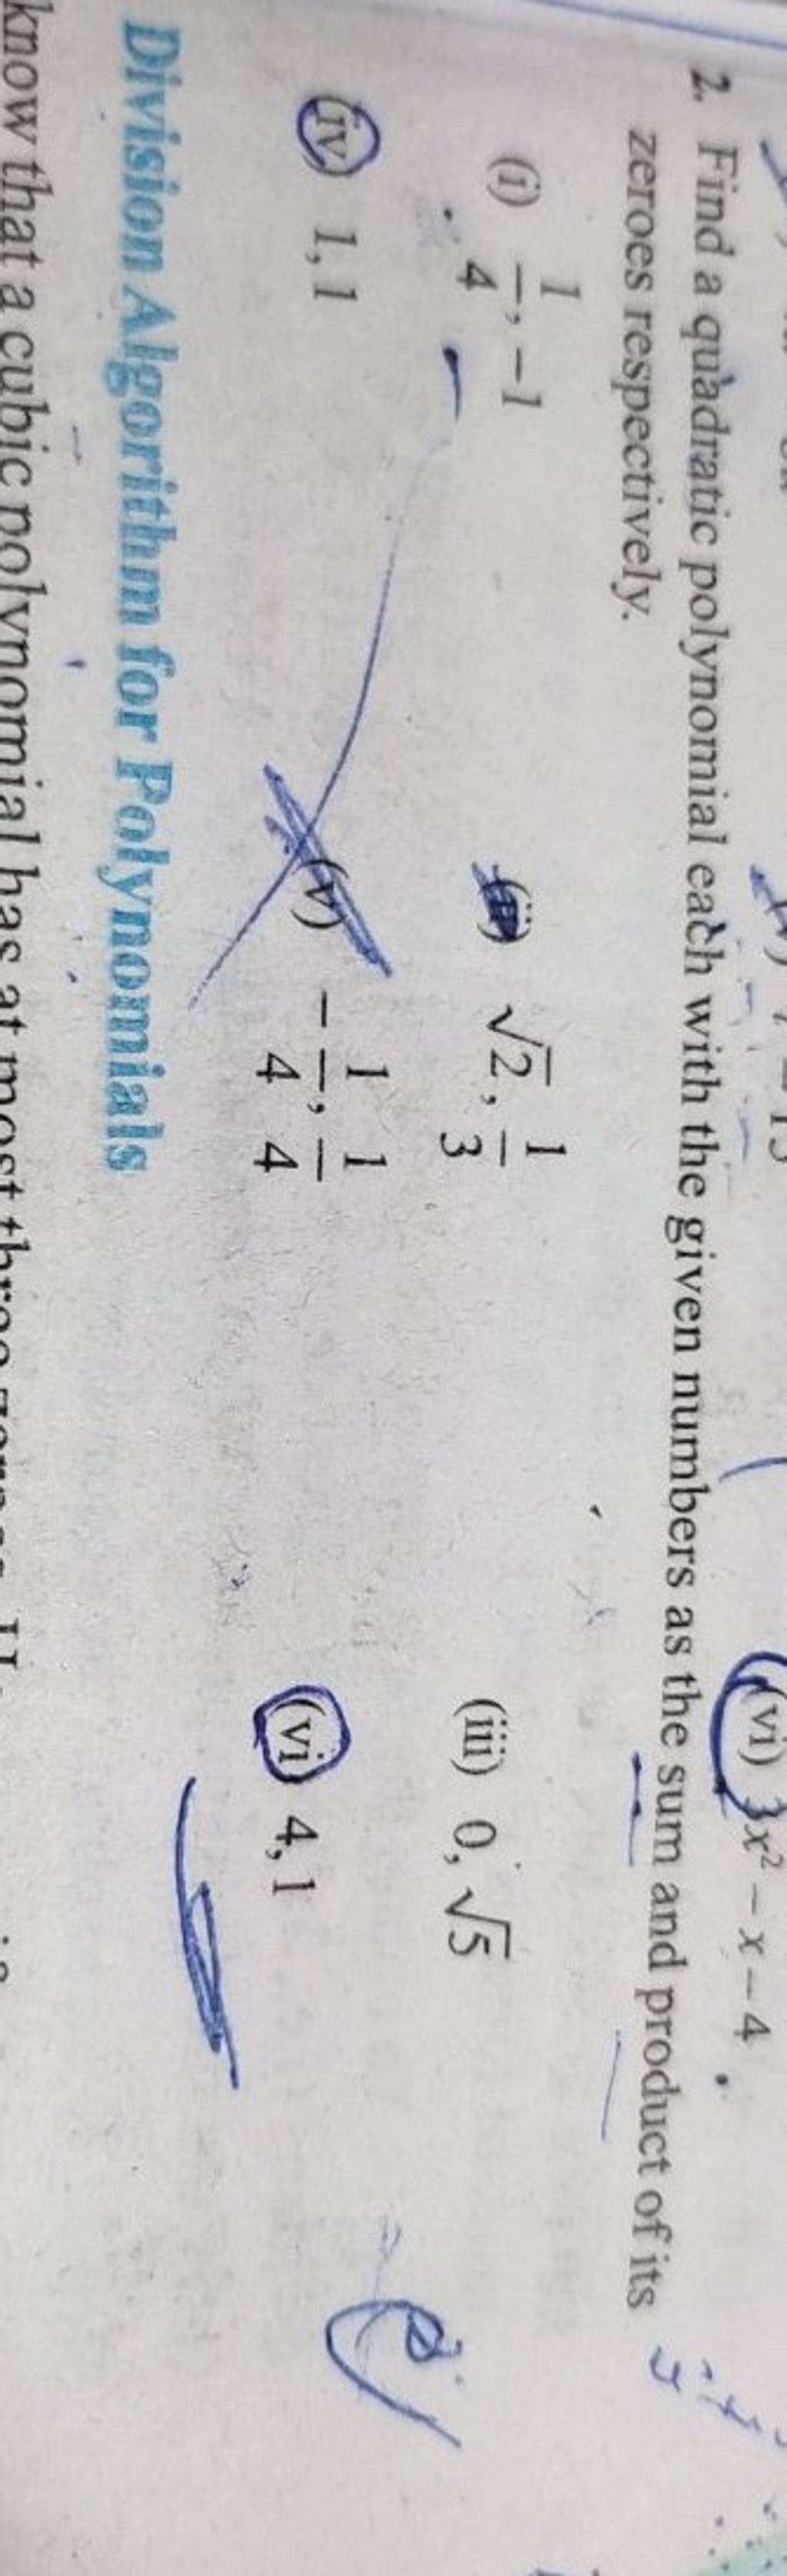 (vi) 3x² – x – 4
2. Find a quadratic polynomial each with the given numbers as the sum and product of its
zeroes respectively.
(i) 1/4, –1 (ii) √2, 1/3 (iii) 0, √5
(iv) 1, 1 (v) –1/4, 1/4 (vi) 4, 1
Division Algorithm for Polynomials
know that a cubic polynomial has at most three zeroes.